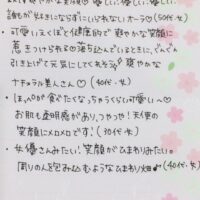 誰もが好きにならずにいられないオーラ♡(40代・女)
・可愛いえくぼと健康的で爽やかな笑顔に
惹きつけられる♡落ち込んでいるときに、ぐんぐん
引き上げて元気にしてくれそう 爽やかな
ナチュラル美人さん♡(40代・女)
・ほっぺが食べたくなっちゃうくらい可愛い〜♡
お肌も透明感があり、つやっや!天使の
笑顔にメロメロです!(30代・女)
・女優さんみたい!笑顔がひまわりみたい。
周りの人を包み込むようなひまわり畑♪(40代・女)